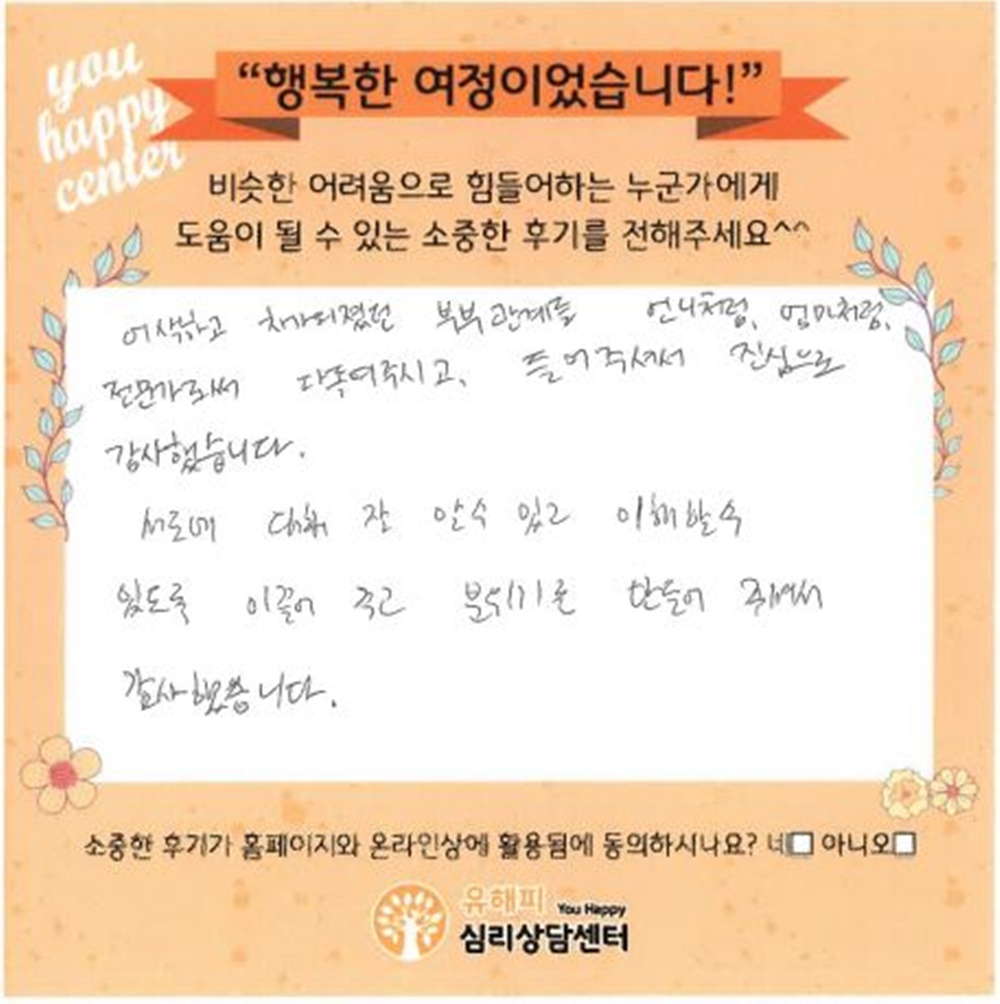 you
happy
center
“행복한 여정이었습니다!”
비슷한 어려움으로 힘들어하는 누군가에게
도움이 될 수 있는 소중한 후기를 전해주세요^^
어색하고 차가워졌던 부부관계를 언니처럼, 엄마처럼,
전문가로써 다독여주시고, 들어주셔서 진심으로
감사했습니다.
서로에 대해 잘 알수 있고 이해할수
있도록 이끌어 주고 분위기를 만들어 줘서
감사했습니다.
소중한 후기가 홈페이지와 온라인상에 활용됨에 동의하시나요? 네 아니오
유해피 You Happy
심리상담센터